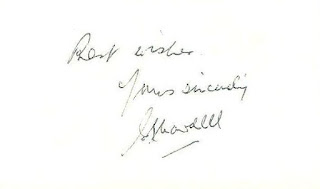 Best wishes
Yours sincerely